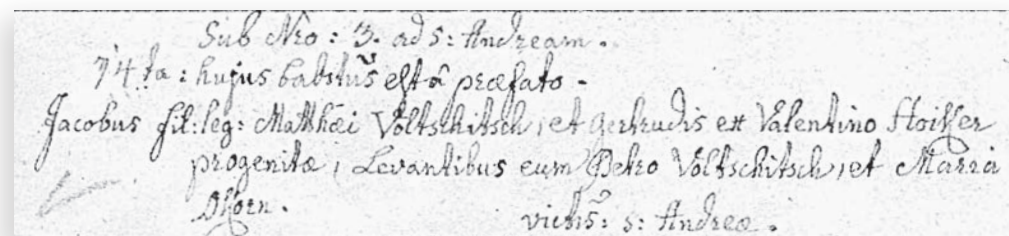 Sub Nro: 3. ad S: Andream.
14ta: hujus batstus est â præfato.
Jacobus fil: leg: Matthæi Voltschitsch, et Gertrudis ex Valentino Stoiser
progenitæ, Levantibus eum Petro Voltschitsch, et Maria
Dhorn. vicinis: S: Andreæ.